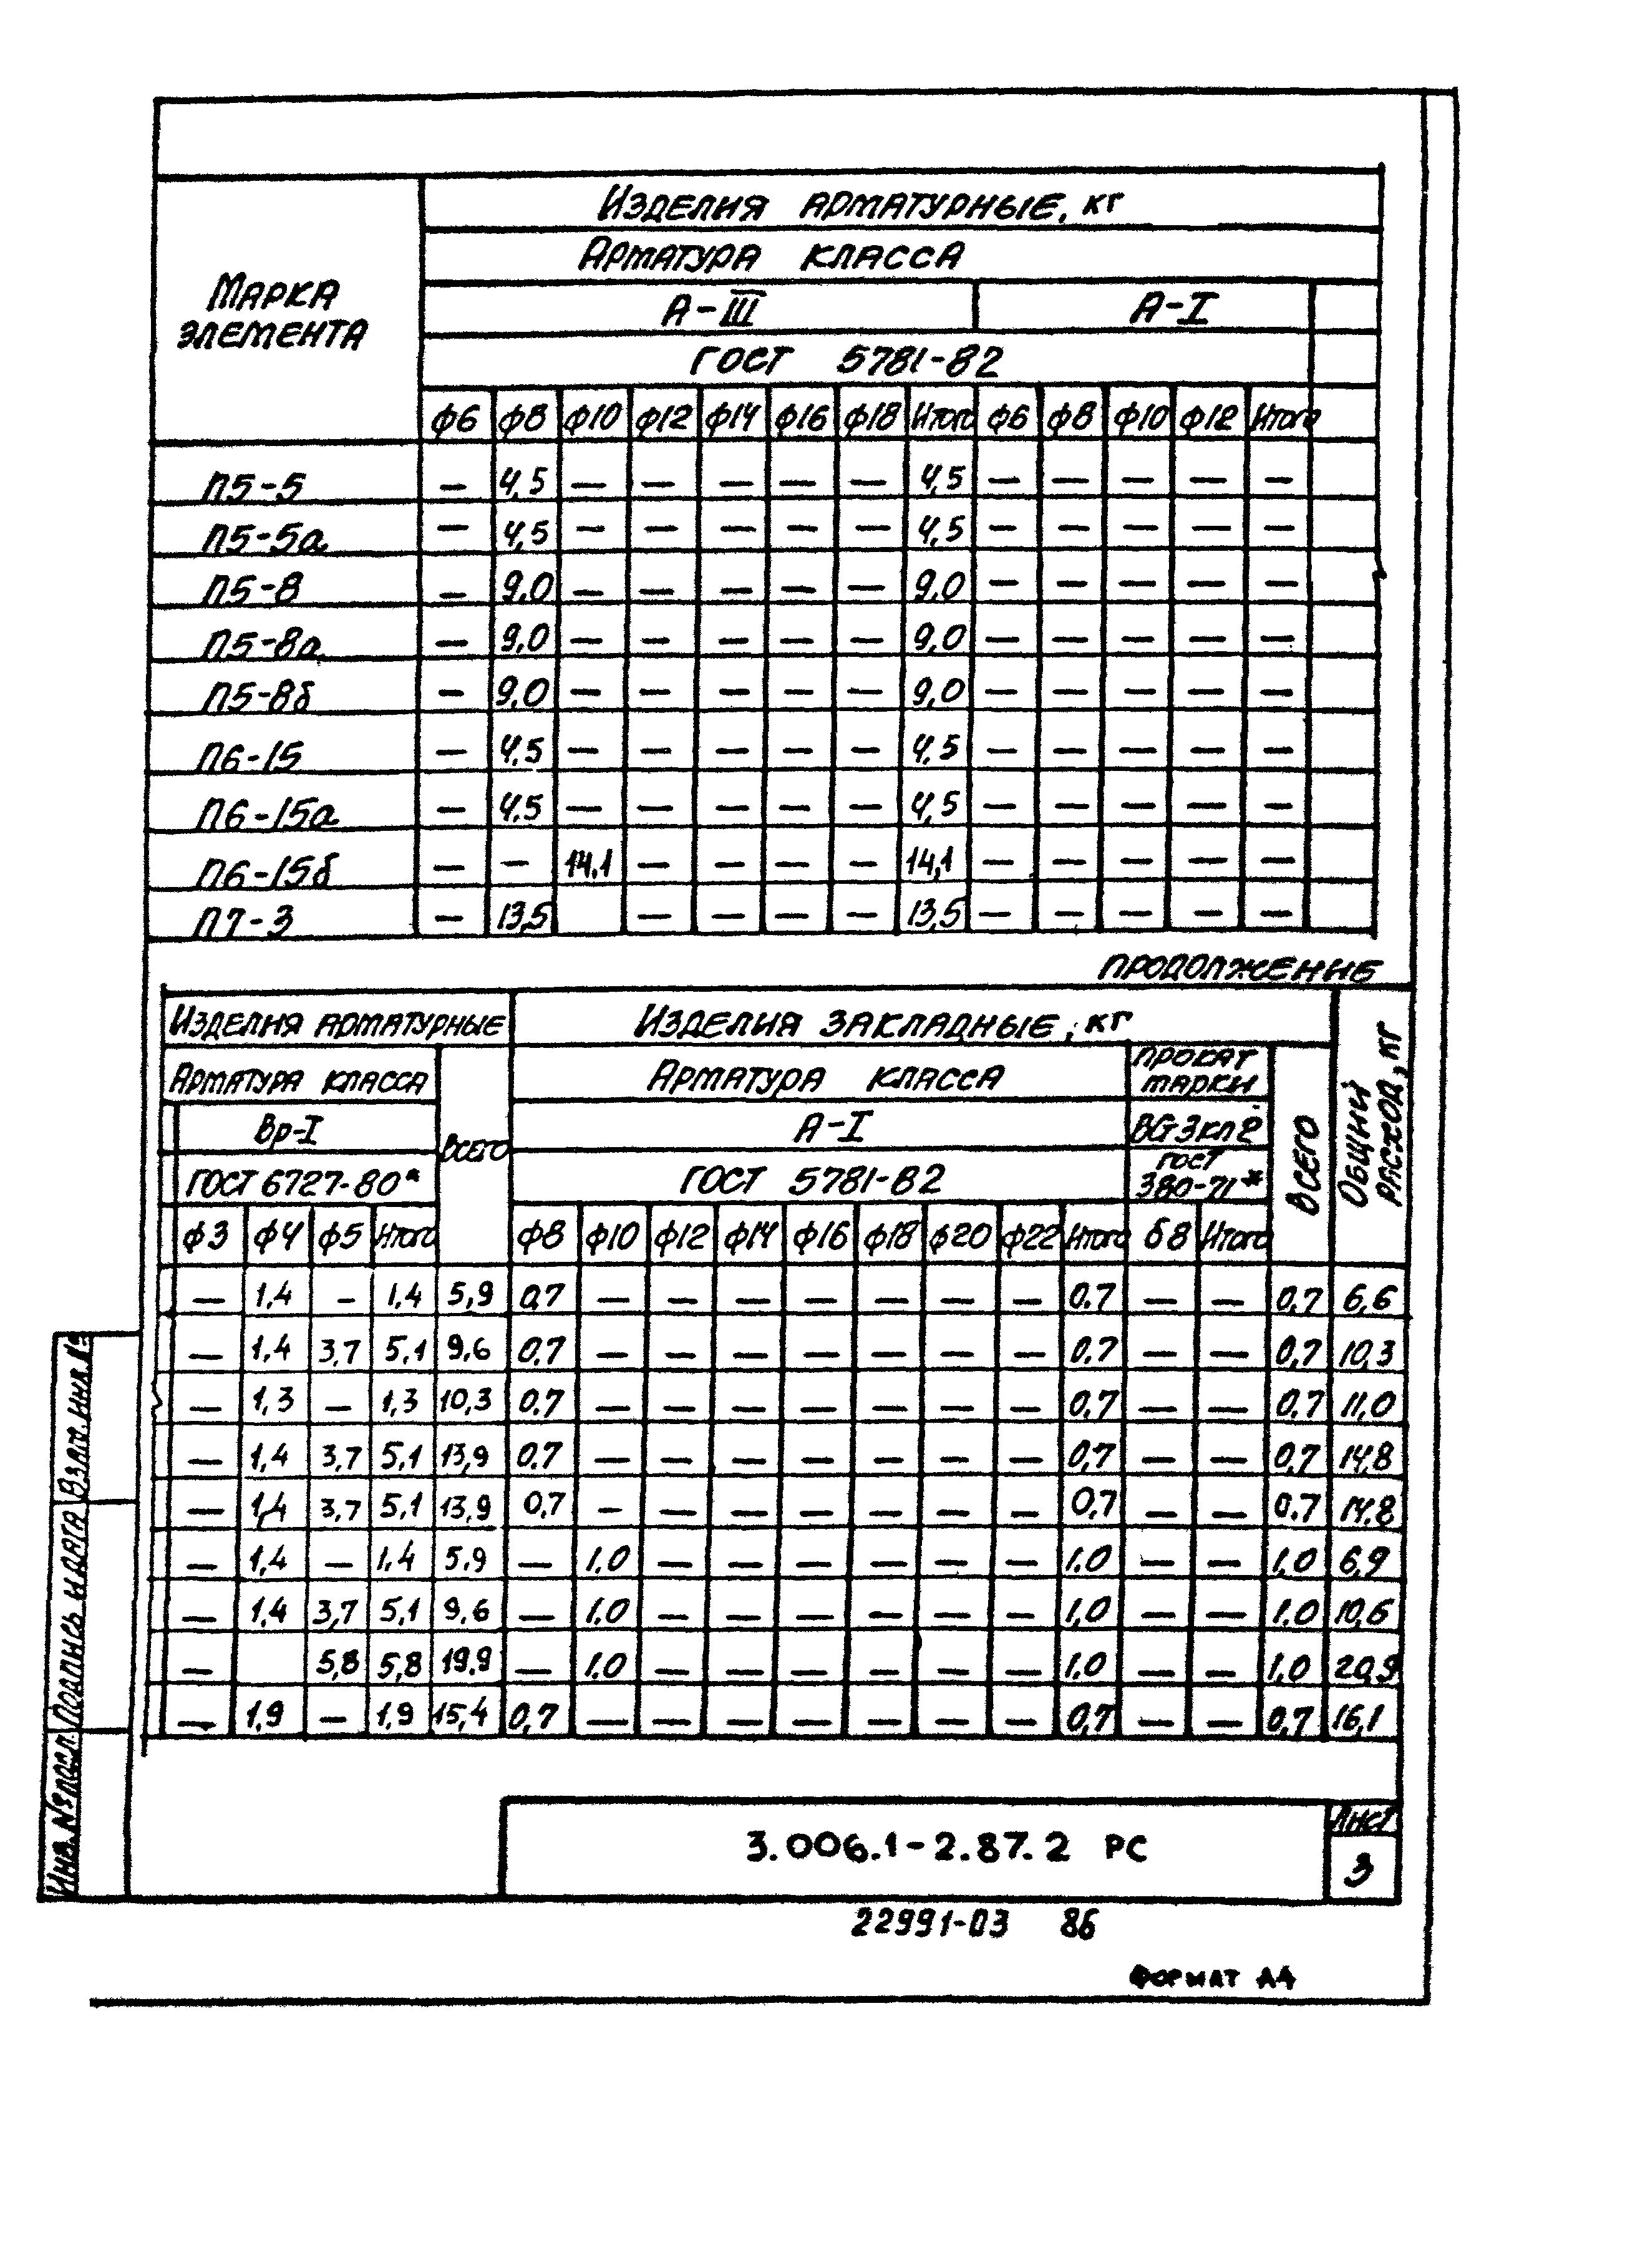 Изделия арматурные, кг
Арматура класса
Марка элемента
А-III А-I
ГОСТ 5781-82
ф6 ф8 ф10 ф12 ф14 ф16 ф18 Итого ф6 ф8 ф10 ф12 Итого
П5-5 — 4,5 — — — — — 4,5 — — — — —
П5-5а — 4,5 — — — — — 4,5 — — — — —
П5-8 — 9,0 — — — — — 9,0 — — — — —
П5-8а — 9,0 — — — — — 9,0 — — — — —
П5-8б — 9,0 — — — — — 9,0 — — — — —
П6-15 — 4,5 — — — — — 4,5 — — — — —
П6-15а — 4,5 — — — — — 4,5 — — — — —
П6-15б — — 14,1 — — — — 14,1 — — — — —
П7-3 — 13,5 — — — — 13,5 — — — — —
продолжение
Изделия арматурные Изделия закладные, кг
Арматура класса Всего Арматура класса Прокат марки Всего Общий расход, кг
Вр-I А-I ВСт3кп2
ГОСТ 6727-80* ГОСТ 5781-82 ГОСТ 380-71*
ф3 ф4 ф5 Итого ф8 ф10 ф12 ф14 ф16 ф18 ф20 ф22 Итого б8 Итого
— 1,4 — 1,4 5,9 0,7 — — — — — — — 0,7 — — 0,7 6,6
— 1,4 3,7 5,1 9,6 0,7 — — — — — — — 0,7 — — 0,7 10,3
— 1,3 — 1,3 10,3 0,7 — — — — — — — 0,7 — — 0,7 11,0
— 1,4 3,7 5,1 13,9 0,7 — — — — — — — 0,7 — — 0,7 14,8
— 1,4 3,7 5,1 13,9 0,7 — — — — — — — 0,7 — — 0,7 14,8
— 1,4 — 1,4 5,9 — 1,0 — — — — — — 1,0 — — 1,0 6,9
— 1,4 3,7 5,1 9,6 — 1,0 — — — — — — 1,0 — — 1,0 10,6
— 5,8 5,8 19,9 — 1,0 — — — — — — 1,0 — — 1,0 20,9
— 1,9 — 1,9 15,4 0,7 — — — — — — — 0,7 — — 0,7 16,1
Взам. инв. №
Подпись и дата
Инв. № подл.
3.006.1-2.87.2 РС
Лист
3
22991-03 86
Формат А4